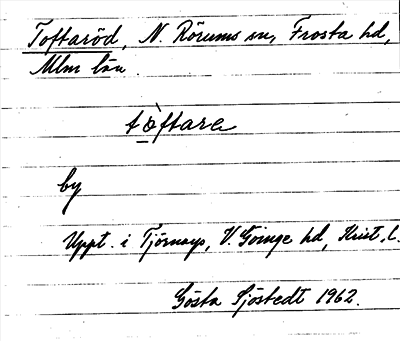 Toftaröd, N. Rörums sn, Frosta hd,
Mlm län.
tòftare
by
Uppt. i Tjörnarp, V. Göinge hd, Krist. l.
Gösta Sjöstedt 1962.